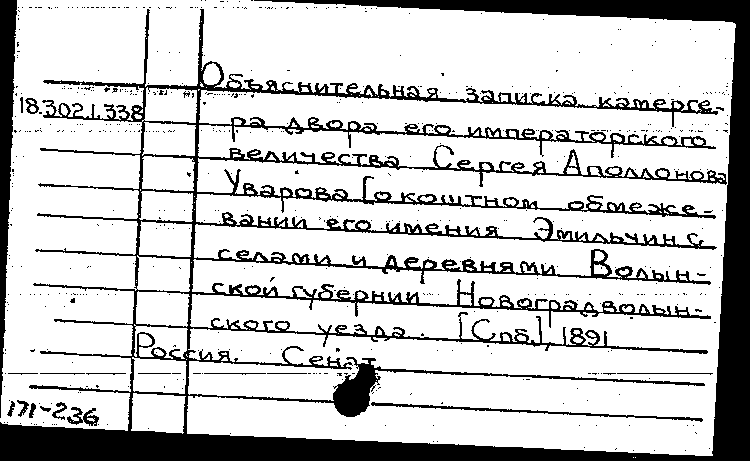 Объяснительная записка камерге-
18.302.1.338
ра двора его императорского
величества Сергея Аполлонова
Уварова [о коштном обмеже-
вании его имения Эмильчин с
селами и деревнями Волын-
ской губернии Новоградволын-
ского уезда. [Спб.], 1891
Россия. Сенат
171-236